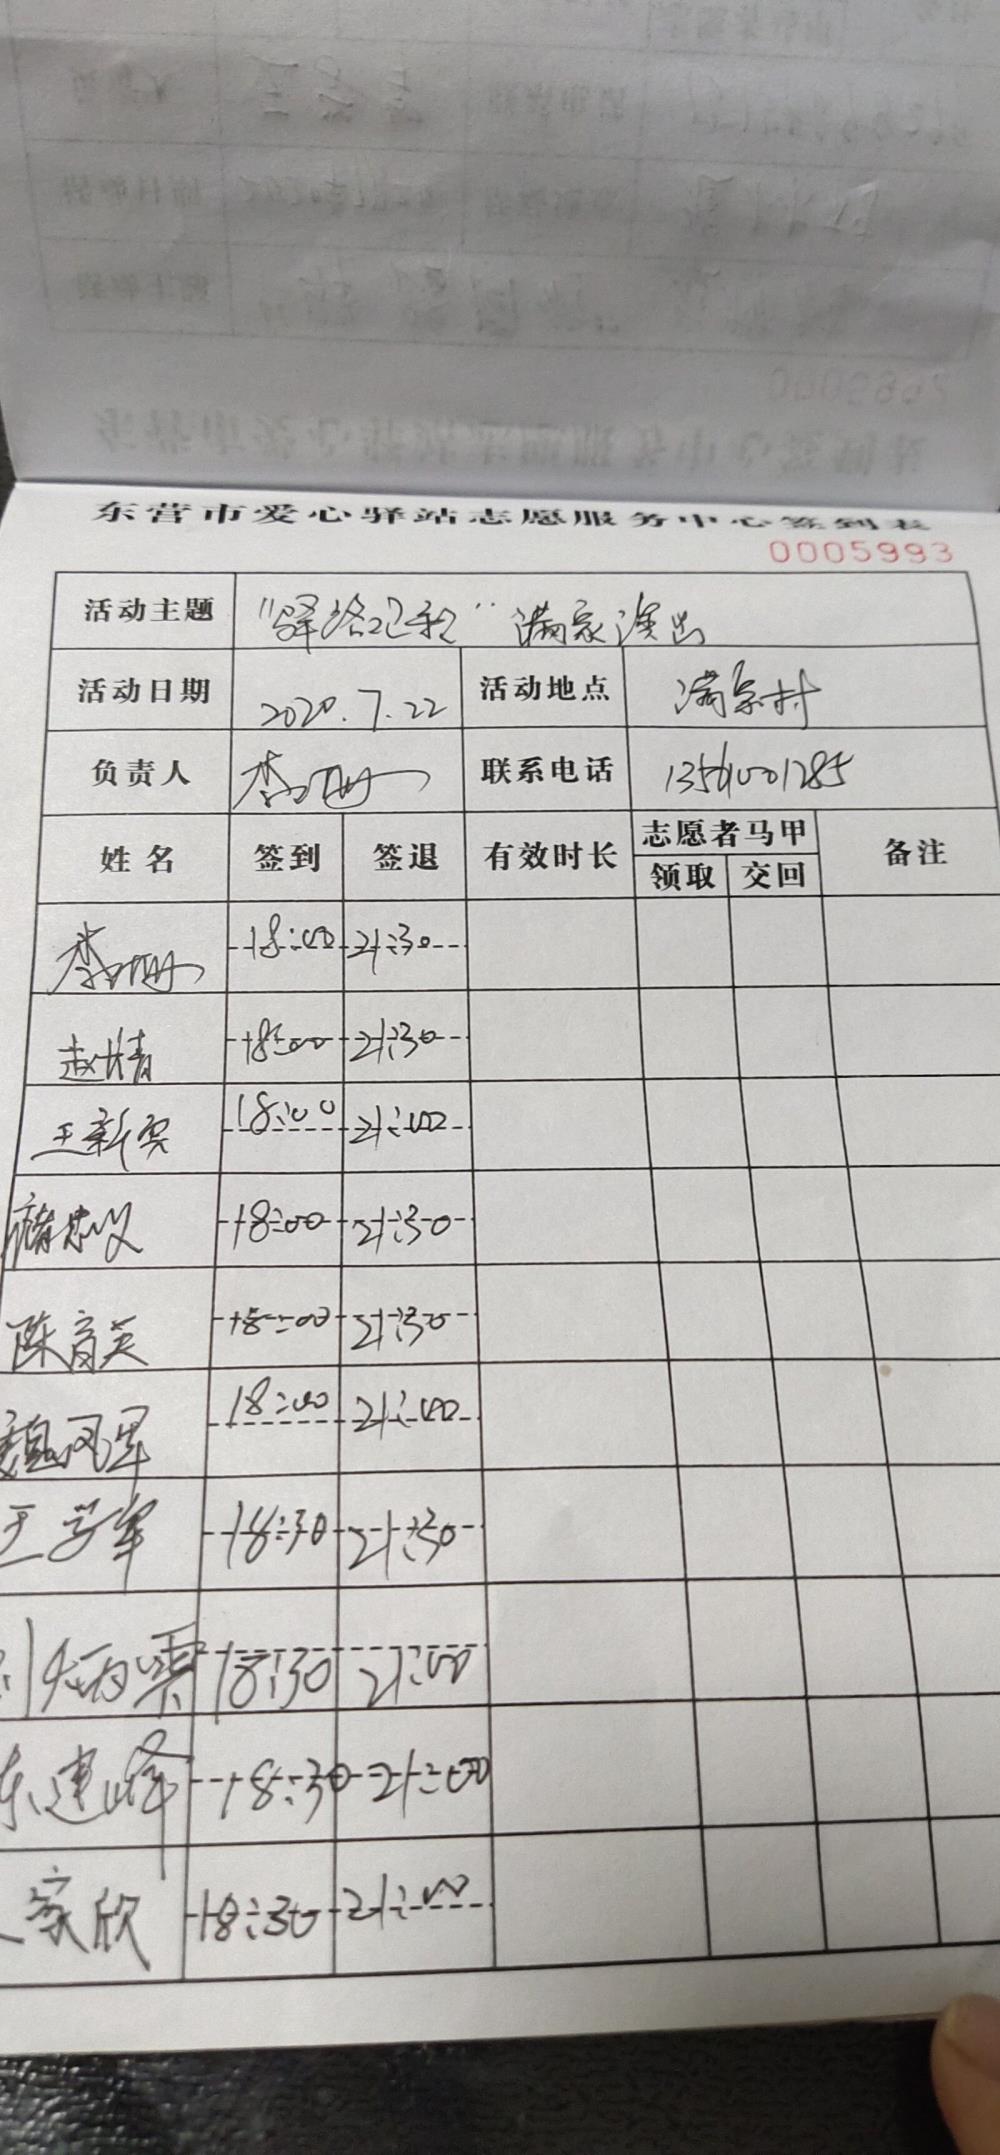 东营市爱心驿站志愿服务中心签到表
0005993
活动主题 满家演出
活动日期 2020.7.22 活动地点 满家村
负责人 李 联系电话
姓名 签到 签退 有效时长 志愿者马甲 备注
领取 交回
李 18:00 21:30
赵长青 18:00 21:30
王新实 18:00 21:00
18:00 21:30
陈育英 18:00 21:30
魏凤军 18:00 21:00
王学军 18:30 21:30
18:30 21:00
建峰 18:30 21:00
家欣 18:30 21:00